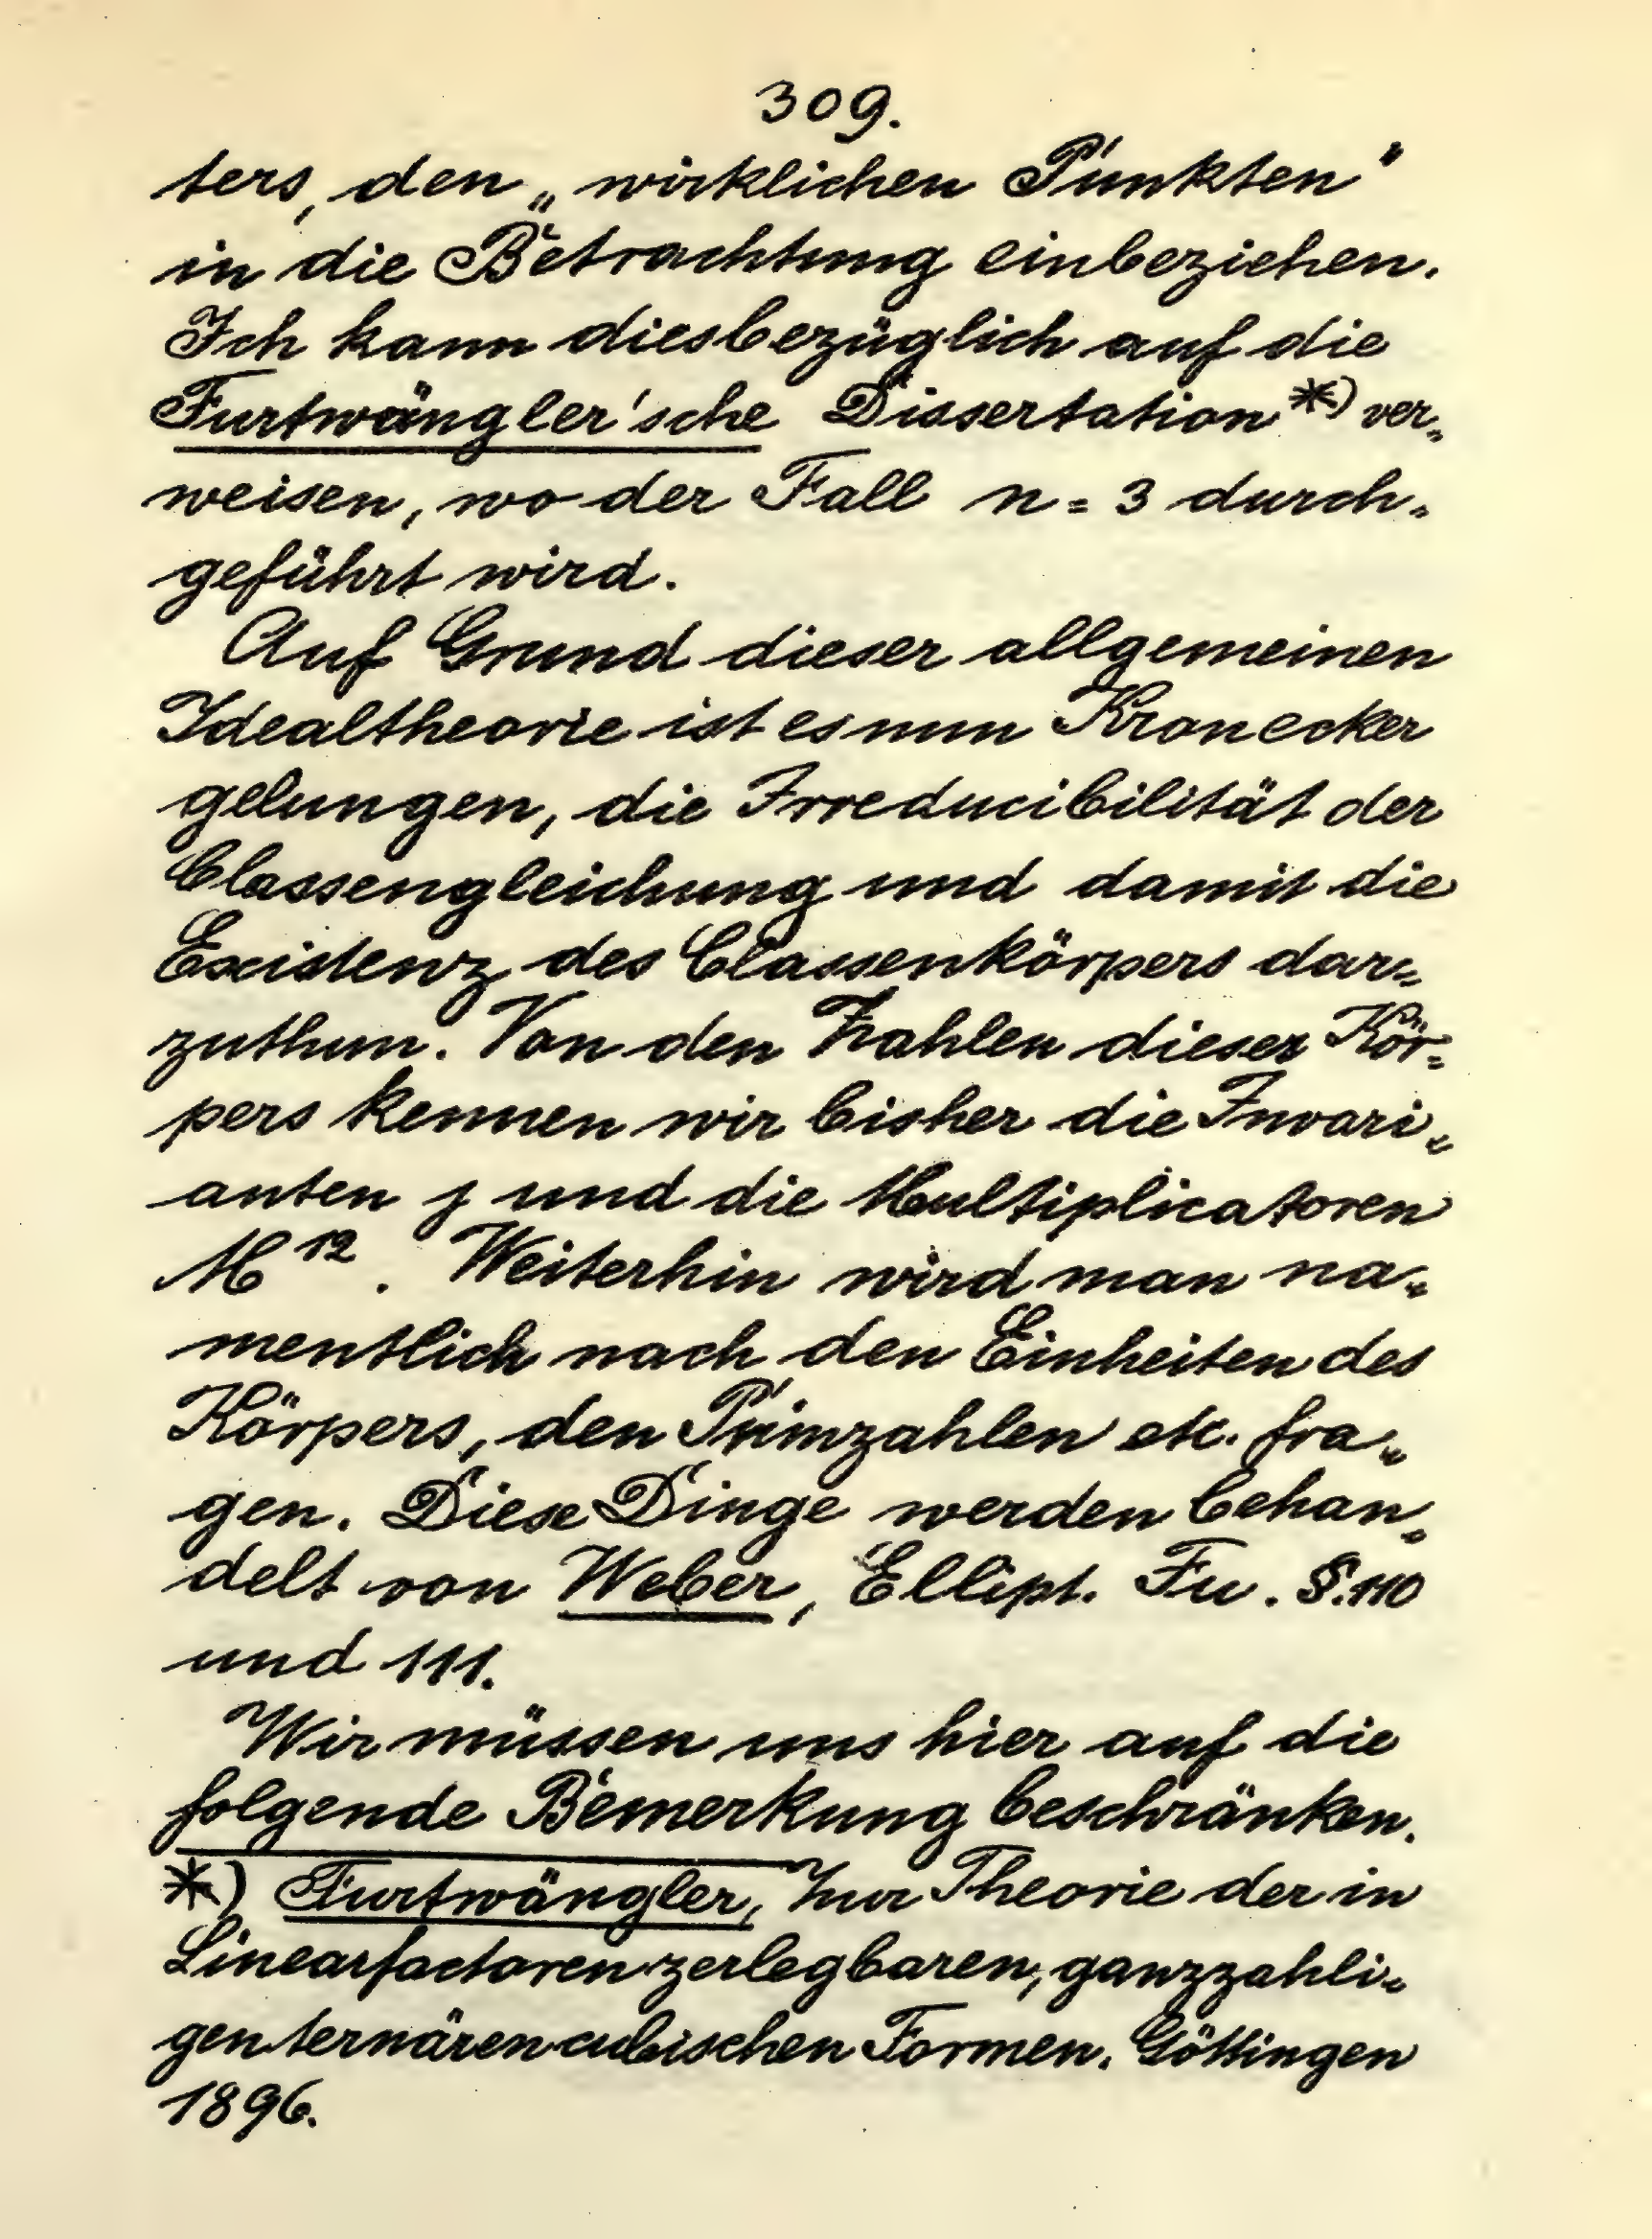 309.
ters, den „wirklichen Punkten"
in die Betrachtung einbeziehen.
Ich kann diesbezüglich auf die
Furtwängler'sche Dissertation *) ver-
weisen, wo der Fall n = 3 durch-
geführt wird.
Auf Grund dieser allgemeinen
Idealtheorie ist es nun Kronecker
gelungen, die Irreducibilität der
Classengleichung und damit die
Existenz des Classenkörpers dar-
zuthun. Von den Zahlen dieser Kör-
pers kennen wir bisher die Invari-
anten j und die Multiplicatoren
M¹². Weiterhin wird man na-
mentlich nach den Einheiten des
Körpers, den Primzahlen etc. fra-
gen. Diese Dinge werden behan-
delt von Weber, Ellipt. Fu. §.110
und 111.
Wir müssen uns hier auf die
folgende Bemerkung beschränken.
*) Furtwängler, Zur Theorie der in
Linearfactoren zerlegbaren, ganzzahli-
gen ternären cubischen Formen. Göttingen
1896.